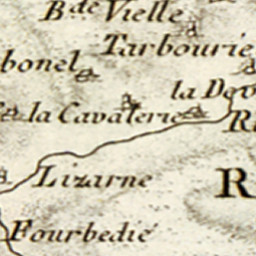 B.de Vielle
Tarbourie
bonel
la Dev
la Cavalerie
R
Lizarne
R
Fourbedie